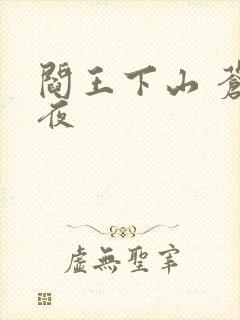 閻王下山 蒼
夜
虛無聖宰